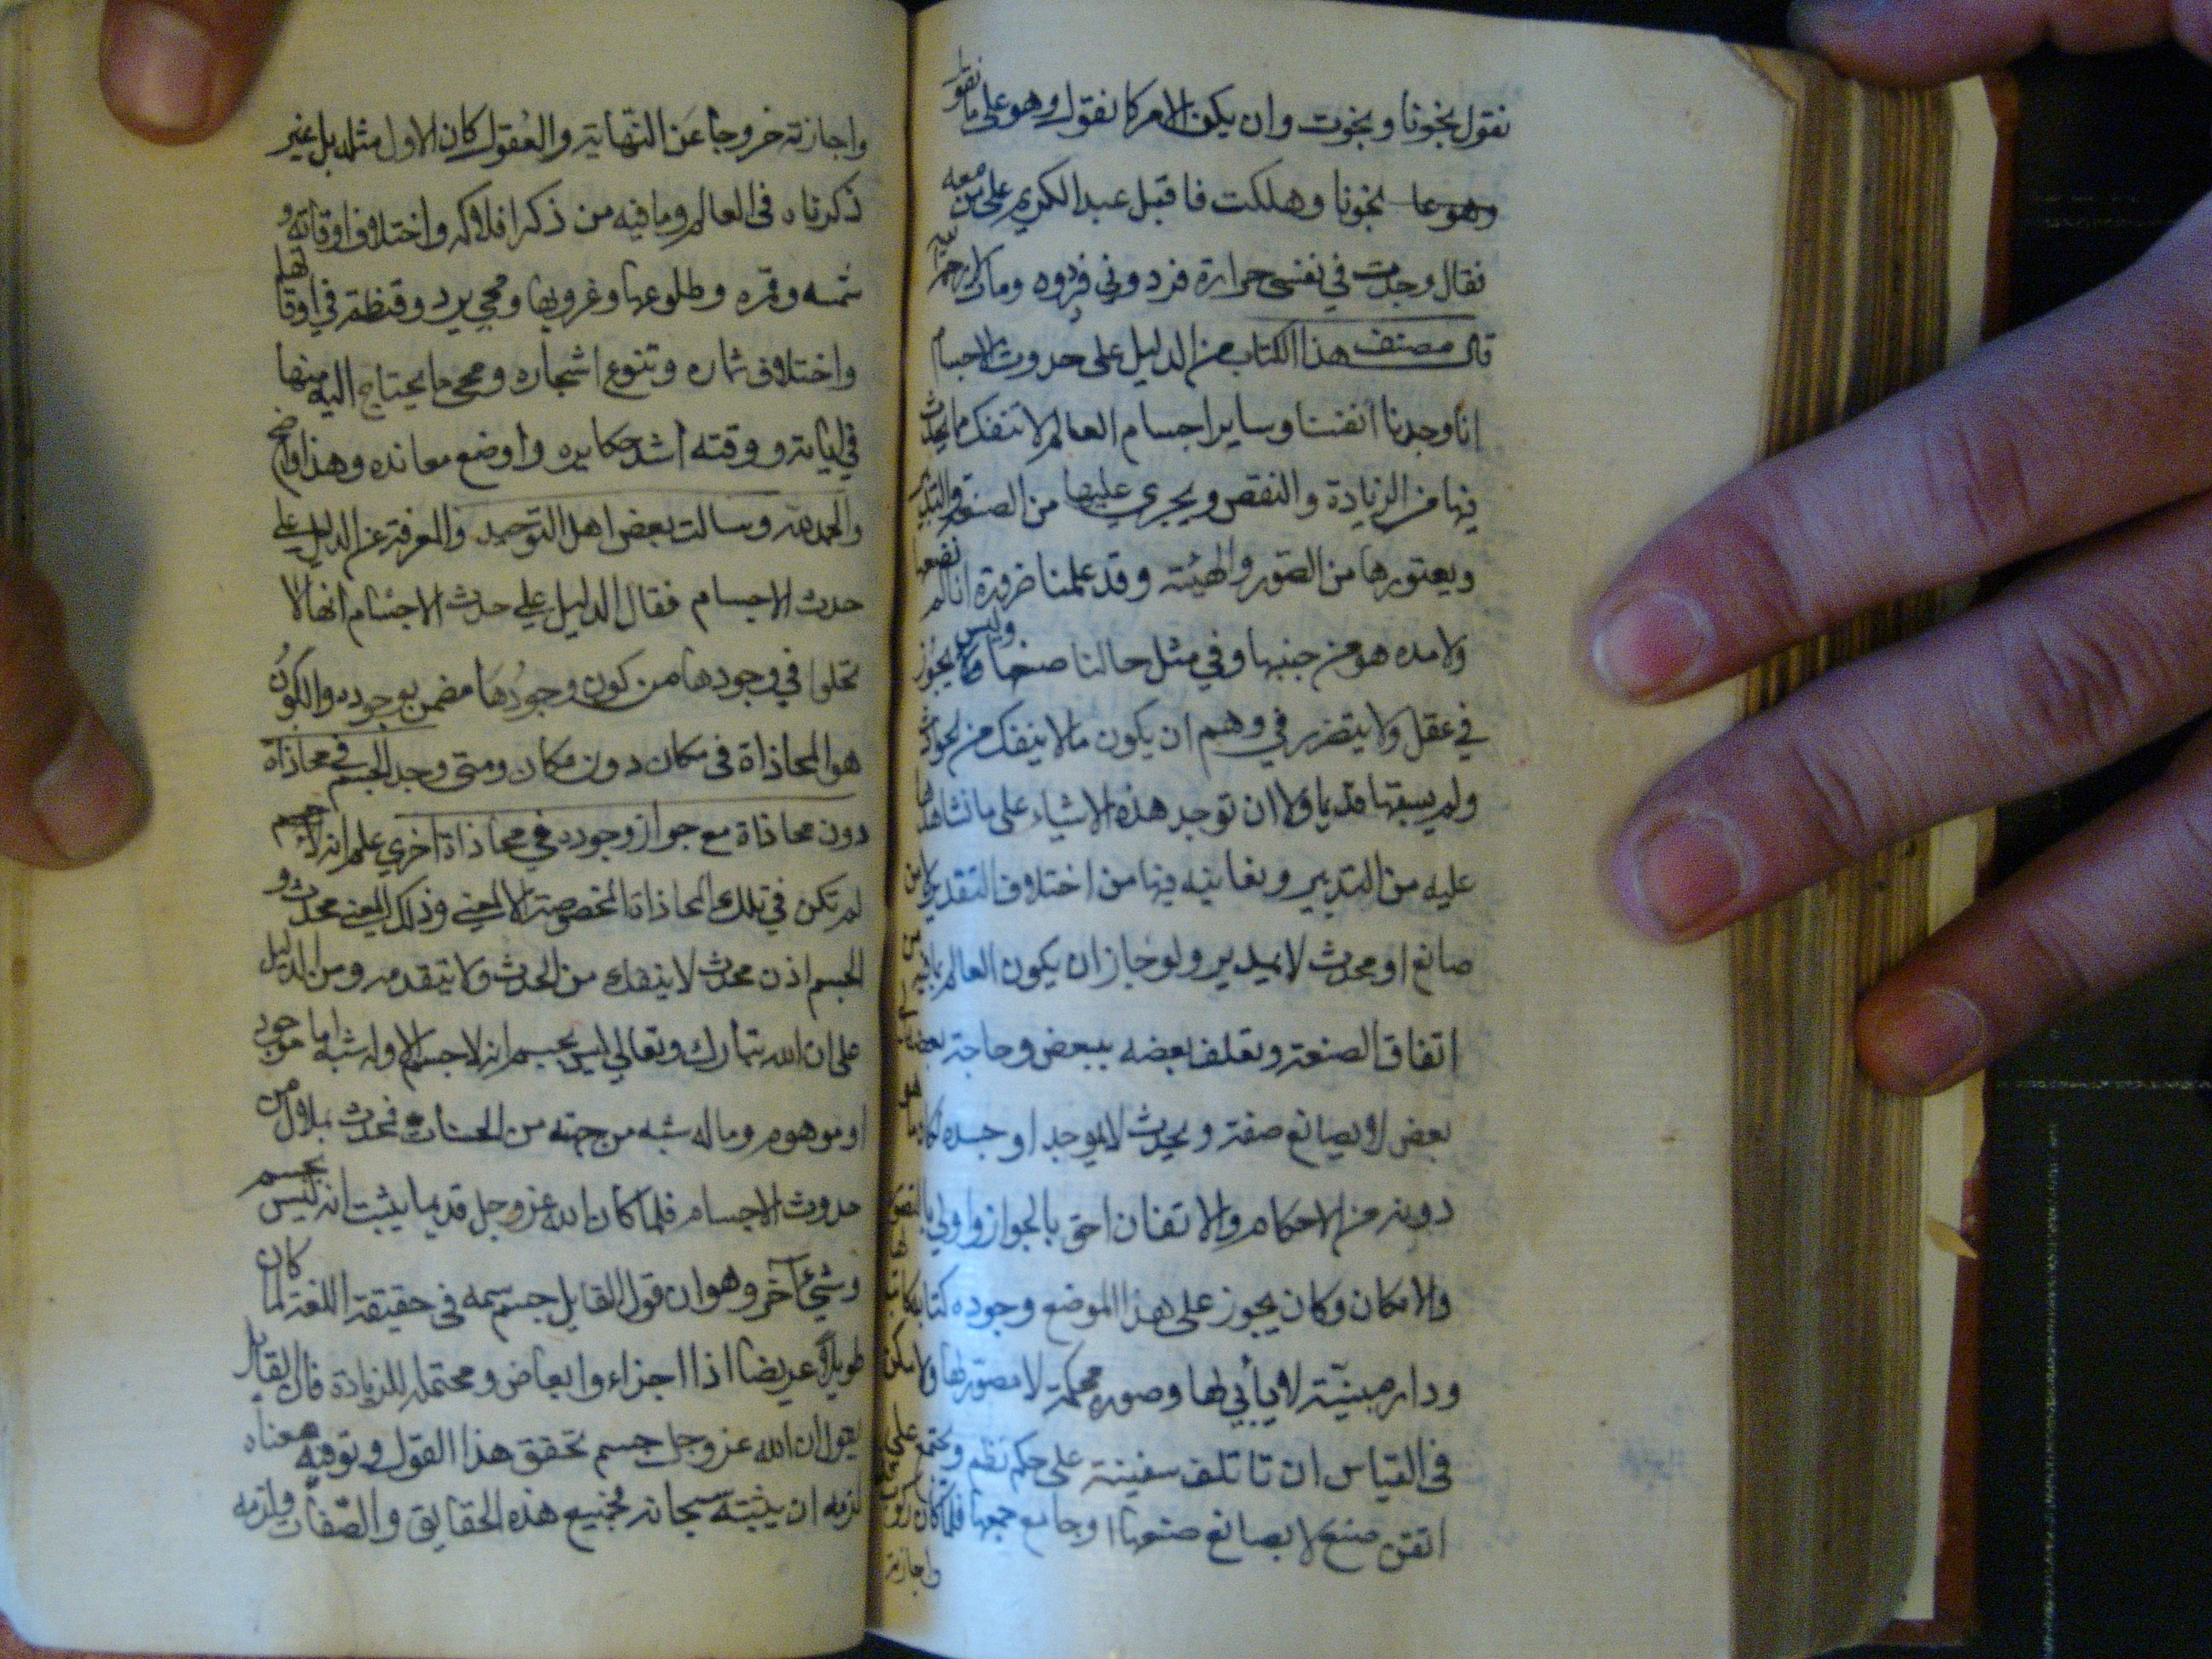 نقول نجونا ونجوت وان يكن الامر كما نقول وهو على ما نقول
وهو عا نجونا وهلكت فاقبل عبد الكريم على من معه
فقال وجدت في نفسي حرارة فردوني فردوه ومات لا رحمه
قال مصنف هذا الكتاب من الدليل على حدوث الاجسام
انا وجدنا انفسنا وساير اجسام العالم لا تنفك مما يحدث
فيها من الزيادة والنقص ويجري عليها من الصنعة والتدبير
ويعتورها من الصور والهيئة وقد علمنا ضرورة انا لم نصنعها
ولا من هو من جنسها وفي مثل حالنا صنعها وليس يجوز
في عقل ولا يتصور في وهم ان يكون ما لا ينفك من الحوادث
ولم يسبقها قديما ولا ان توجد هذه الاشياء على ما نشاهدها
عليه من التدبير ونعاينه فيها من اختلاف التقدير لا من
صانع او محدث لا بمدبر ولو جاز ان يكون العالم بما فيه من
اتفاق الصنعة وتعلق بعضه ببعض وحاجة بعضه الى
بعض لا بصانع صنعه ويحدث لا بموجد اوجده لكان ما هو
دونه من الاحكام والاتقان احق بالجواز واولى بالتصور
والامكان وكان يجوز على هذا الموضع وجود كتابة لا كاتب لها
ودار مبنية لا باني لها وصورة محكمة لا مصور لها ولا يمكن
في القياس ان تاتلف سفينة على احكم نظم وتجتمع على
اتقن صنع لا بصانع صنعها او جامع جمعها فلما كان ركوب
واجازته
واجازته خروجا عن النهاية والعقول كان الاول مثله بل غير
ذكرناه في العالم وما فيه من ذكر افلاكه واختلاف اوقاته و
شمسه وقمره وطلوعها وغروبها ومجي برده وقيظه في اوقاتها
واختلاف ثماره وتنوع اشجاره ومجي ما يحتاج اليه منها
في ابانه ووقته اشد مكابرة واوضع معانده وهذا واضح
والحمد لله وسالت بعض اهل التوحيد والمعرفة عن الدليل على
حدث الاجسام فقال الدليل على حدث الاجسام انها لا
تخلوا في وجودها من كون وجودها مضمن بوجوده والكون
هو المحاذاة في مكان دون مكان ومتى وجد الجسم في محاذاة
دون محاذاة مع جواز وجوده في محاذاة اخري علم انه
لم تكن في تلك المحاذاة المخصوصة الا لمعنى وذلك المعنى محدث و
الجسم اذن محدث لا ينفك من الحدث ولا يتقدمه ومن الدليل
على ان الله تبارك وتعالى ليس بجسم انه لا جسم الا وله شبه اما موجود
او موهوم وماله شبه من جهته من الجهات فمحدث بما دل من
حدوث الاجسام فلما كان الله عز وجل قديما يثبت انه ليس بجسم
وشي اخر وهو ان قول القايل جسم سمه في حقيقة اللغة لما كان
طويلا عريضا ذا اجزاء وابعاض ومحتملة للزيادة فان القايل
يقول ان الله عز وجل جسم تحقق هذا القول ويوفيه معناه
لزمه ان يثبته سبحانه بجميع هذه الحقايق والصفات ولزمه